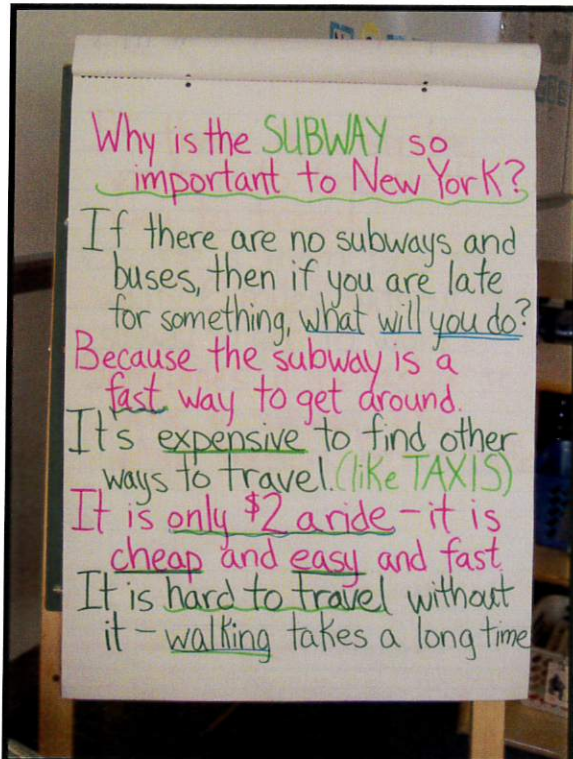 Why is the SUBWAY so
important to New York?
If there are no subways and
buses, then if you are late
for something, what will you do?
Because the subway is a
fast way to get around.
It's expensive to find other
ways to travel. (like TAXIS)
It is only $2 a ride - it is
cheap and easy and fast.
It is hard to travel without
it - walking takes a long time